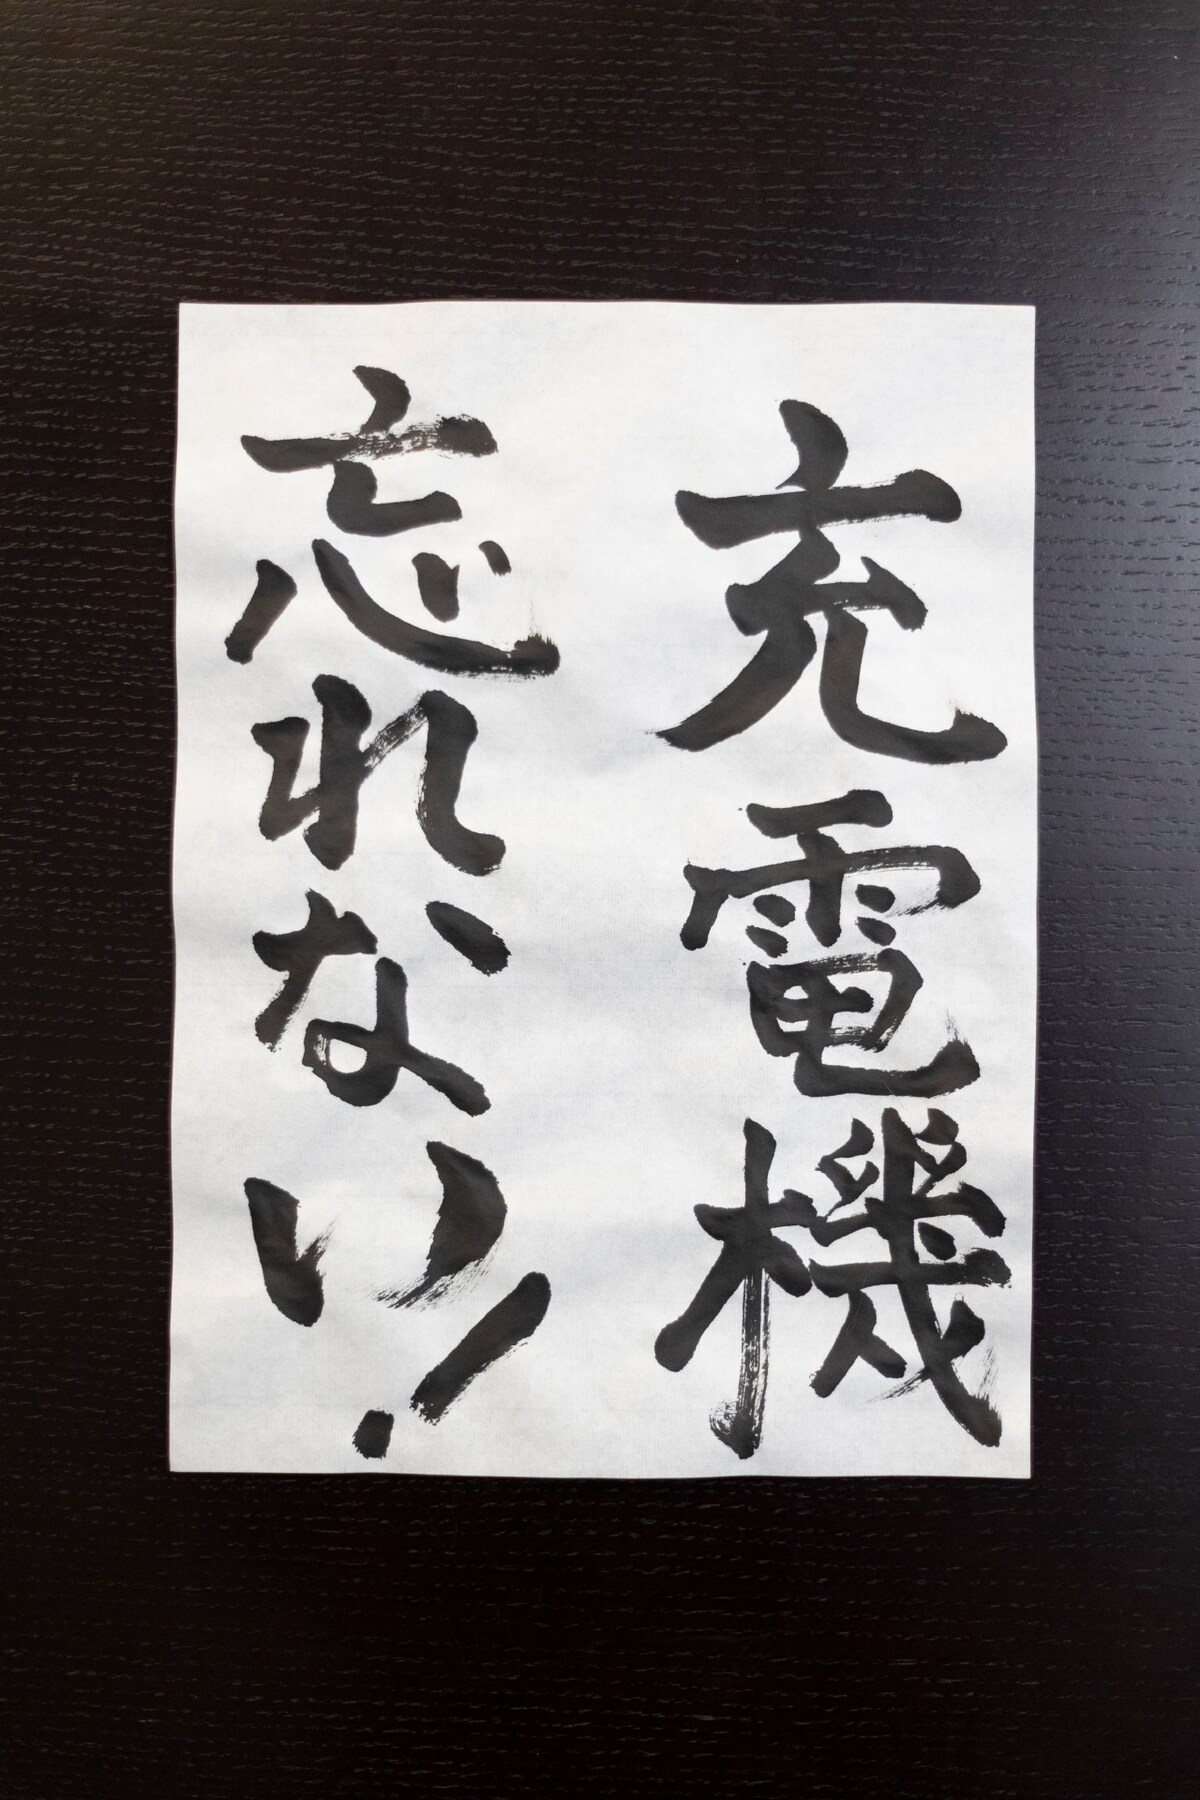 充電機
忘れない!